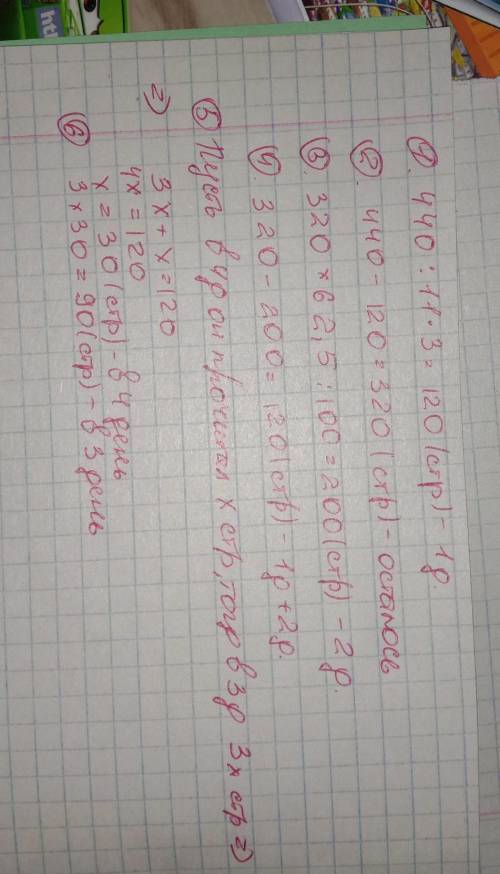 ① 440 : 11 · 3 = 120 (стр) - 1д.
② 440 - 120 = 320 (стр) - осталось
③ 320 × 62,5 : 100 = 200 (стр) - 2д.
④ 320 - 200 = 120 (стр) - 1д + 2д.
⑤ Пусть в 4д он прочитал x стр, тогд в 3д 3x стр =)
=) 3x + x = 120
4x = 120
x = 30 (стр) - в 4 день
⑥ 3 × 30 = 90 (стр) - в 3 день
htt